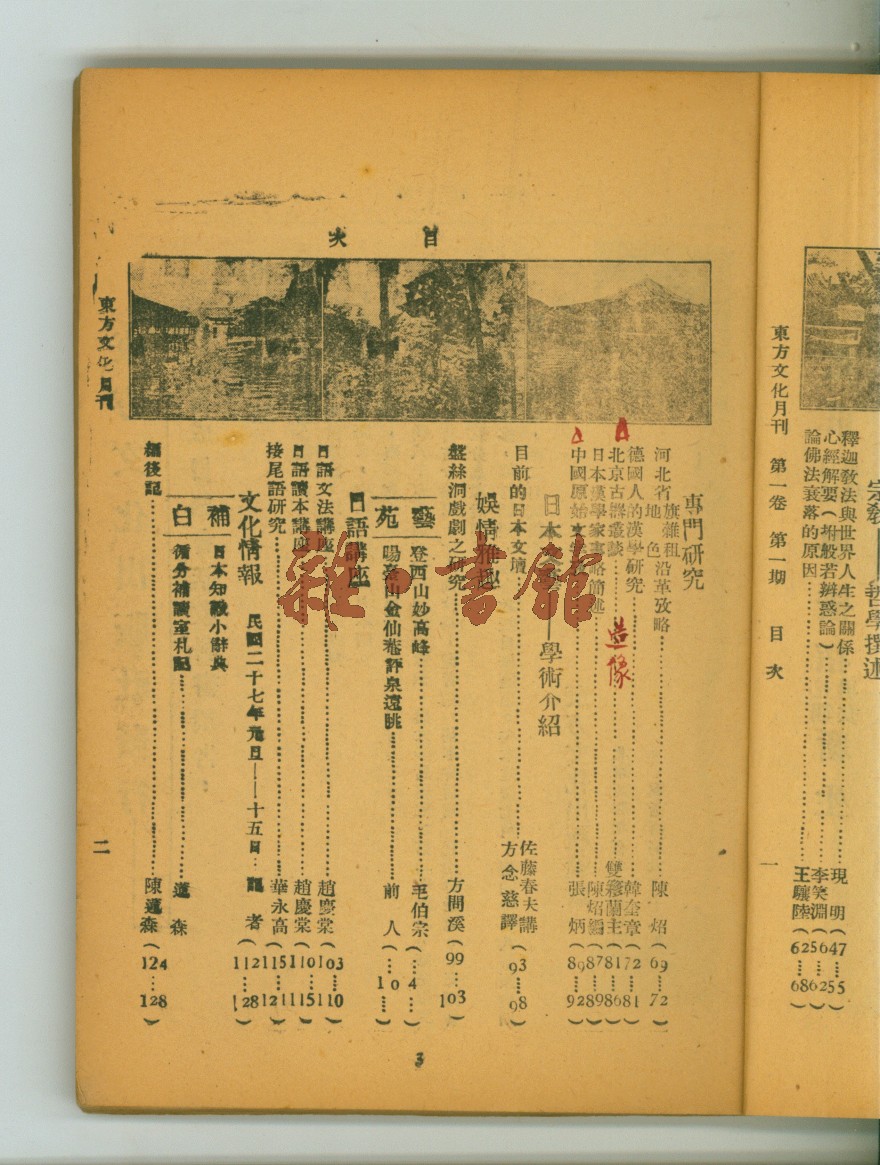 宗敎——哲學撰述
釋迦敎法與世界人生之關係……現明(47…55)
心經解要(附般若辨惑論)……李笑淵(56…62)
論佛法衰落的原因……王驤陸(62…68)
東方文化月刊 第一卷 第一期 目次 一
目次
專門研究
河北省旗雜租地色沿革攷略……陳炤(69…72)
德國人的漢學研究……韓奎章(72…81)
北京古譚叢談……造像……雙蘭主(81…86)
日本漢學家事略簡述……陳炤(87…89)
中國原始文……張炳(89…92)
日本——學術介紹
目前的日本文壇……佐藤春夫講 方念慈譯(93…98)
娛情雅趣
盤絲洞戲劇之研究……方問溪(99…103)
藝苑
登西山妙高峰……毛伯宗(…4…)
暘臺山金仙菴評泉遠眺……前人(…10…)
日語講座
日語文法講座……趙慶棠(103…110)
日語讀本講座……趙慶棠(110…115)
接尾語研究……華永高(115…121)
文化情報 民國二十七年元旦——十五日…記者(112…128)
補白
日本知識小辭典
循分補讀室札記……邁森
編後記……陳邁森(124…128)
東方文化月刊
二
3
雜·書館